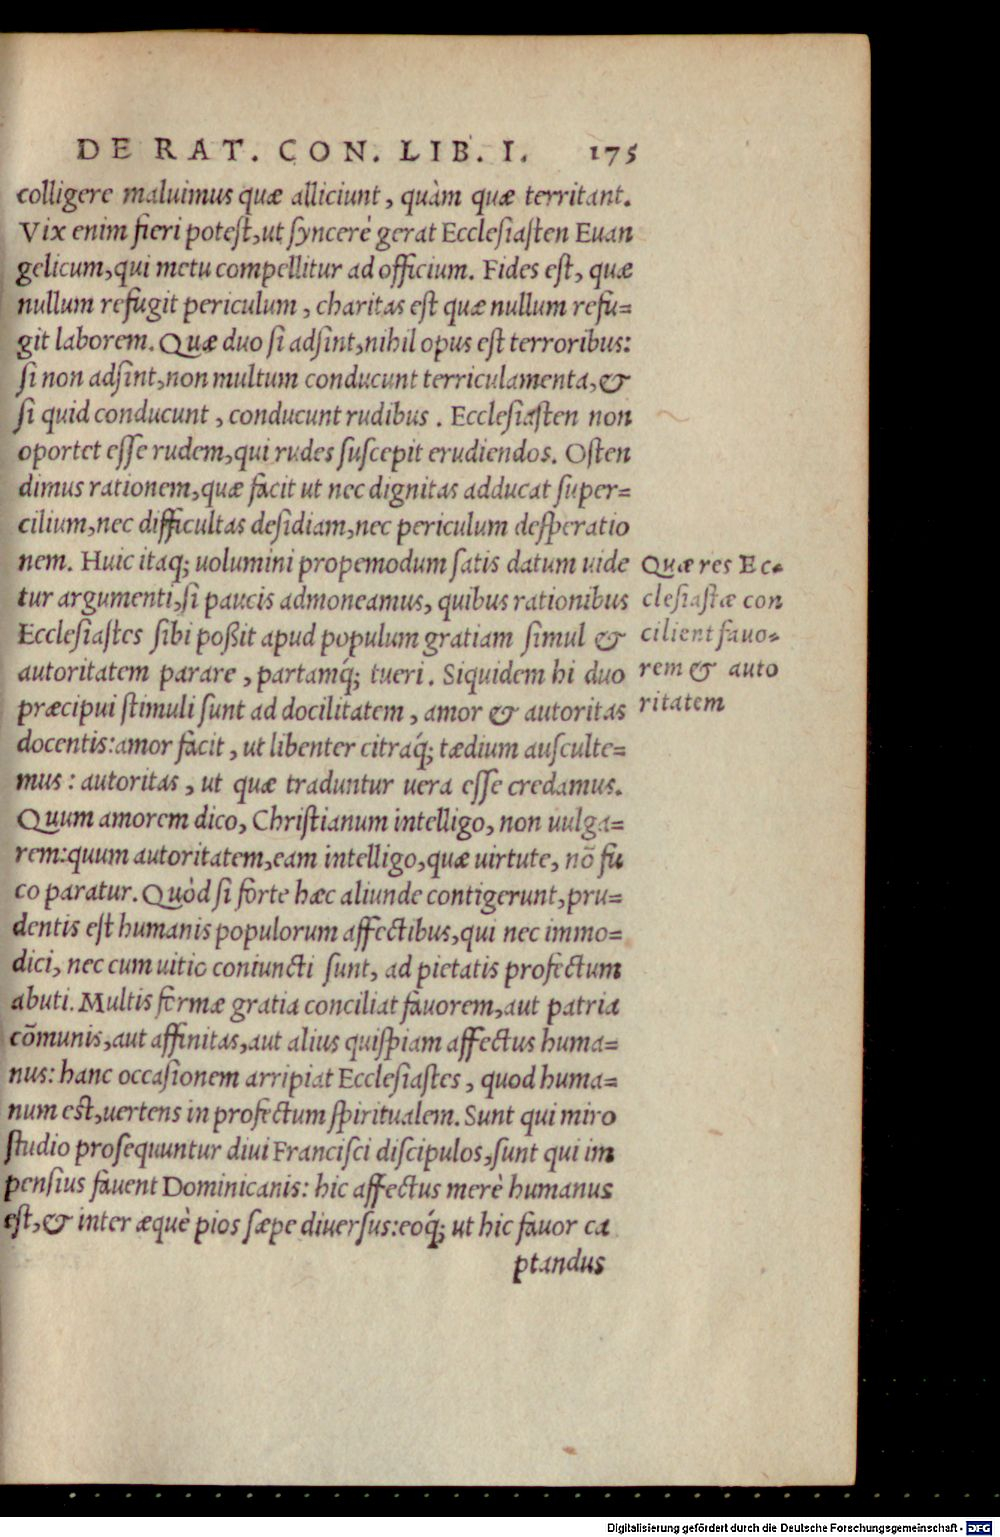 DE RAT. CON. LIB. I. 175
colligere maluimus quæ alliciunt, quàm quæ territant.
Vix enim fieri potest, ut synceré gerat Ecclesiasten Euan
gelicum, qui metu compellitur ad officium. Fides est, quæ
nullum refugit periculum, charitas est quæ nullum refu=
git laborem. Quæ duo si adsint, nihil opus est terroribus:
si non adsint, non multum conducunt terriculamenta, &
si quid conducunt, conducunt rudibus. Ecclesiasten non
oportet esse rudem, qui rudes suscepit erudiendos. Osten
dimus rationem, quæ facit ut nec dignitas adducat super=
cilium, nec difficultas desidiam, nec periculum desperatio
nem. Huic itaq; uolumini propemodum satis datum uide
tur argumenti, si paucis admoneamus, quibus rationibus
Ecclesiastes sibi poßit apud populum gratiam simul &
autoritatem parare, partamq́; tueri. Siquidem hi duo
præcipui stimuli sunt ad docilitatem, amor & autoritas
docentis: amor facit, ut libenter citraq́; tædium ausculte=
mus: autoritas, ut quæ traduntur uera esse credamus.
Quum amorem dico, Christianum intelligo, non uulga=
rem: quum autoritatem, eam intelligo, quæ uirtute, nō fu
co paratur. Quòd si forte hæc aliunde contigerunt, pru=
dentis est humanis populorum affectibus, qui nec immo=
dici, nec cum uitio coniuncti sunt, ad pietatis profectum
abuti. Multis formæ gratia conciliat fauorem, aut patria
cōmunis, aut affinitas, aut alius quispiam affectus huma=
nus: hanc occasionem arripiat Ecclesiastes, quod huma=
num est, uertens in profectum spiritualem. Sunt qui miro
studio prosequuntur diui Francisci discipulos, sunt qui im
pensius fauent Dominicanis: hic affectus merè humanus
est, & inter æquè pios sæpe diuersus: eoq́; ut hic fauor ca
ptandus
Quæ res Ec=
clesiastæ con
cilient fauo=
rem & auto
ritatem
Digitalisierung gefördert durch die Deutsche Forschungsgemeinschaft - DFG